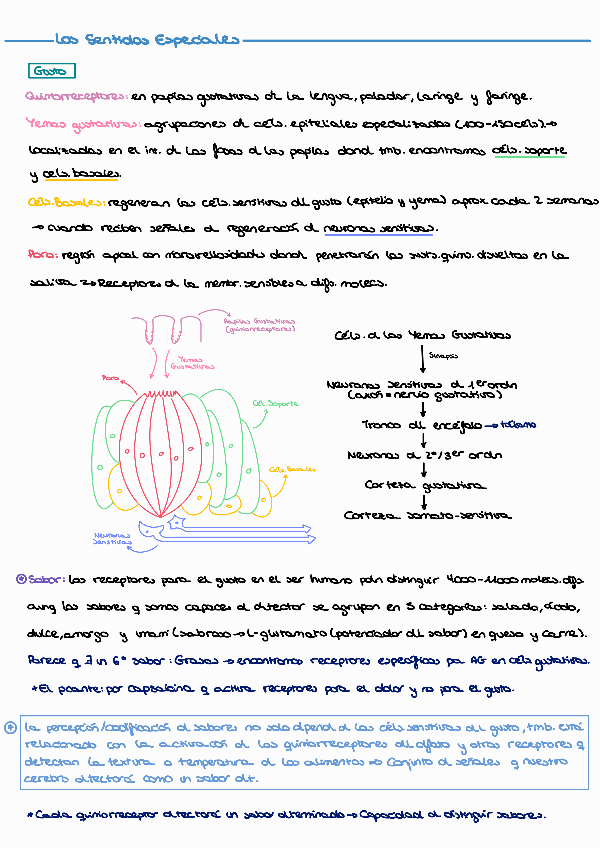 Los Sentidos Especiales
Gusto
Quimiorreceptores: en papilas gustativas de la lengua, paladar, laringe y faringe.
Yemas gustativas: agrupaciones de céls. epiteliales especializadas (100-150céls)→
localizadas en el int. de las fosas d las papilas dond tmb. encontramos céls. soporte
y céls. basales.
Céls. Basales: regeneran las céls. sensitivas dl gusto (epitelio y yema) aprox. cada 2 semanas
→ cuando reciben señales d regeneració d neuronas sensitivas.
Poro: región apical con microvellosidades dond penetrarán las susts. quím. disueltas en la
saliva Receptores d la membr. sensibles a difs. molecs.
Papilas Gustativas
(quimiorreceptores)
Yemas
Gustativas
Poro
Cél. Soporte
Céls. Basales
Neuronas
Sensitivas
Céls. d las Yemas Gustativas
Sinapsis
Neuronas sensitivas d 1er ordn
(axón = nervio gustativo)
Tronco dl encéfalo → tálamo
Neuronas d 2º/3er ordn
Corteza gustativa
Corteza somato-sensitiva
Sabor: los receptores para el gusto en el ser humano pdn distinguir 4000-11000 molecs. difs
aunq los sabores q somos capaces d dtectar se agrupan en 5 categorías: salado, ácido,
dulce, amargo y umami (sabroso → L-glutamato (potenciador dl sabor) en queso y carne).
Parece q ∃ un 6º sabor: Grasas → encontramos receptores específicos pa AG en céls gustativas.
*El picante: por capsaicina q activa receptores para el dolor y no para el gusto.
La percepción/codificación d sabores no solo dpend d las céls. sensitivas dl gusto, tmb. está
relacionado con la activación d los quimiorreceptores dl olfato y otros receptores q
detectan la textura o temperatura d los alimentos ⇒ Conjunto d señales q nuestro
cerebro dtectará como un sabor dt.
*Cada quimiorreceptor dtectará un sabor dterminado → Capacidad d distinguir sabores.